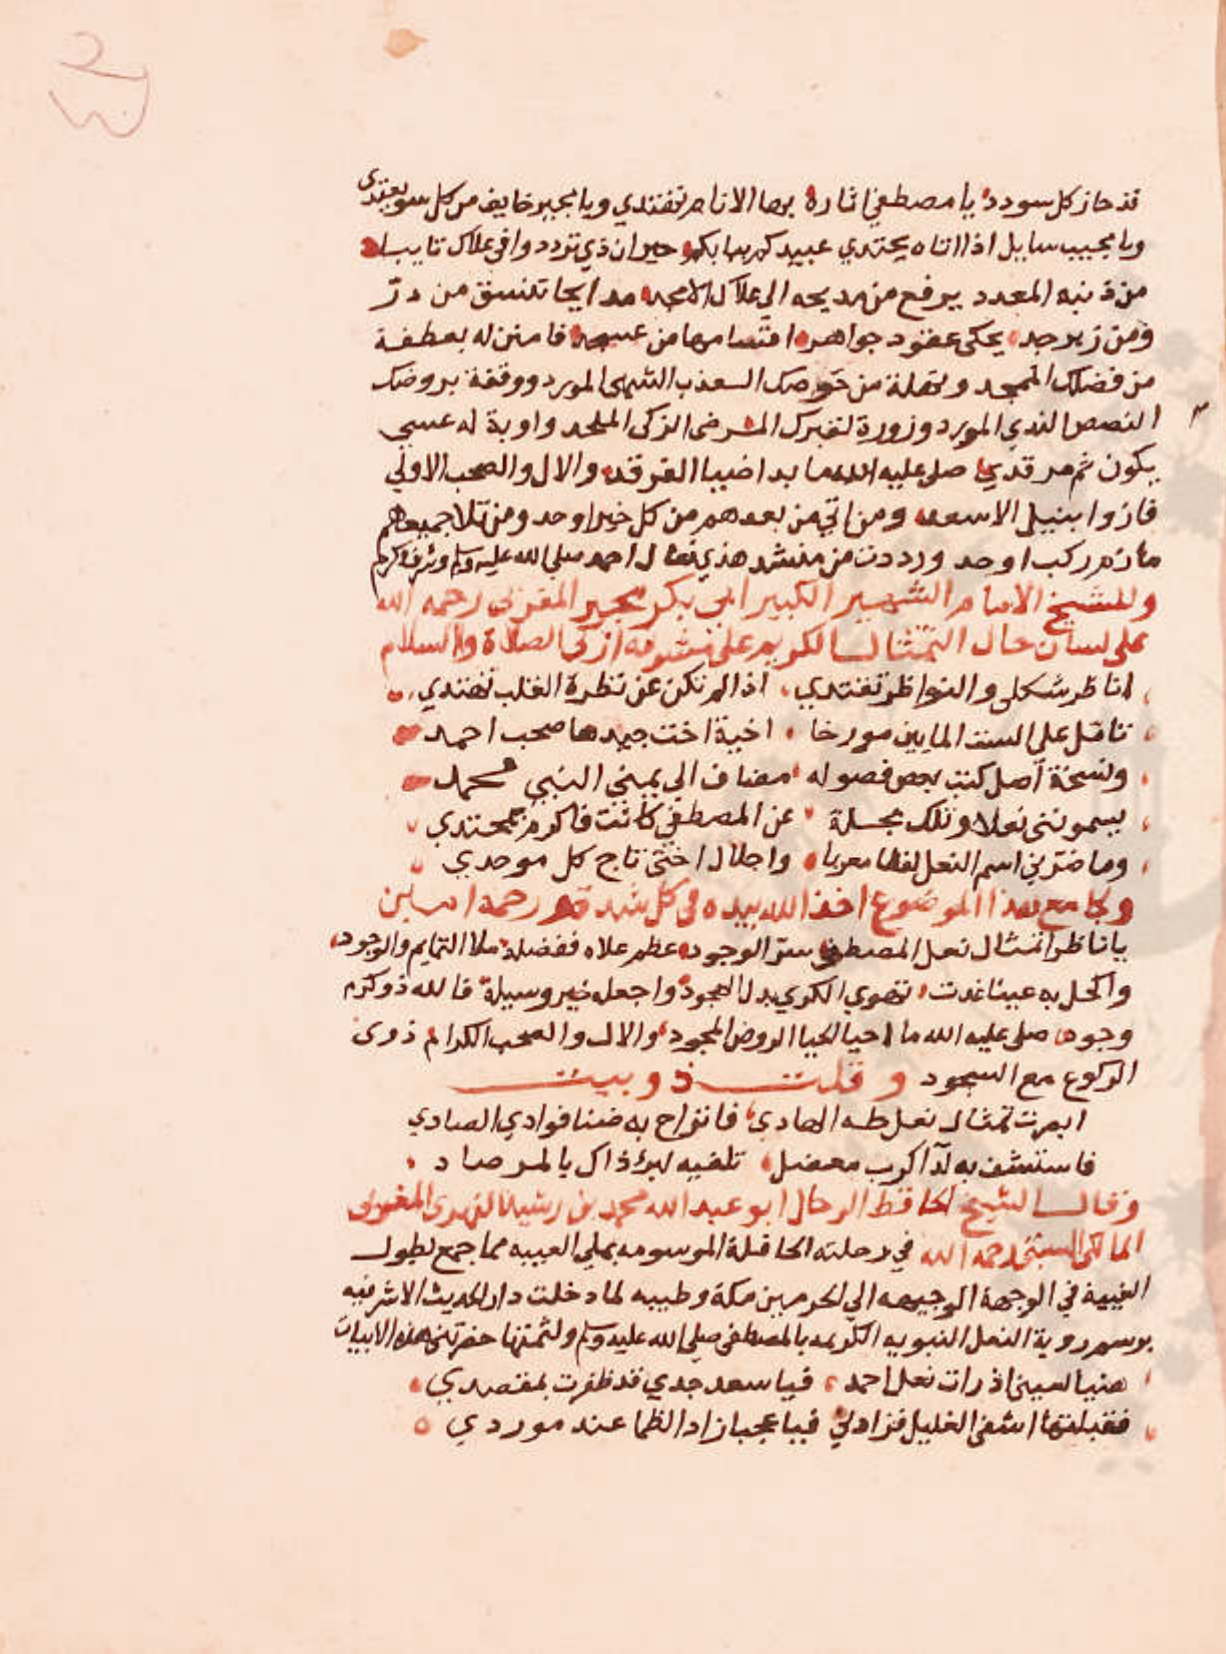 قد حاز كل سودد يا مصطفي اثاره بها الانام تفتدي ويا مجير خايف من كل سو يعتدي
ويا مجيب سايل اذا اتاه يجتدي عبيدكم ببابكم حيران ذي تردد وافي علاك تايبا
من ذنبه المعدد يرفع من مديحه الي علاك الامجد مدايحا تنسق من در
ومن زبرجد يحكي عقود جواهر اقتسامها من عسجد فامنن له بعطفة
من فضلك الممجد ونهلة من حوضك العذب الشهي المورد ووقفة بروضك
النصص الندي المورد وزورة لقبرك المرضي الزكي الملحد واوبة له عسي
يكون ثم مرقدي صلي عليه الله ما بدا ضيا الفرقد والال والصحب الاولي
فازوا بنيل الاسعد ومن اتي من بعدهم من كل خير اوحد ومن تلا جميعهم
ما زم ركب او حد ورددت من منشد هذي نعال احمد صلي الله عليه وسلم وشرف وكرم
وللشيخ الامام الشهير الكبير ابي بكر مجير المقري رحمه الله
علي لسان حال التمثال الكريم علي مشرفه ازكي الصلاة والسلام
اناظر شكلي والنواظر تفتدي اذا لم تكن عن نظرة القلب تغتدي
تاقل علي السنت المايين مورخا اخية اخت جيدها صحب احمد
ونسخة اصل كنت بعض فصوله مضاف الي يمني النبي محمد
يسمونني نعلا وتلك مجسلة عن المصطفي كانت فاكرم بمحتدي
وما ضرني اسم النعل لفظا معربا واجلال اختي تاج كل موحدي
ولجامع هذا الموضوع اخذ الله بيده في كل شدة ورحمه امين
يا ناظرا تمثال نعل المصطفي سر الوجود عظم علاه ففضله ملا التهايم والنجود
واكحل به عينا غدت تهوي الكري بدل الهجود واجعله خير وسيلة فالله ذو كرم
وجود صلي عليه الله ما احيا الحيا الروض المجود والال والصحب الكرام ذوي
الركوع مع السجود وقلت دوبيت
ابصرت تمثال نعل طه الهادي فانزاح به ضنا فوادي الصادي
فاستشف به لدا كرب معضل تلفيه لبرء ذاك بالمرصاد
وقال الشيخ الحافظ الرحال ابو عبد الله محمد بن رشيد الفهري المغربي
المالكي السبتي رحمه الله في رحلته الحافلة الموسومة بملي العيبه مما جمع بطول
الغيبة في الوجهة الوجيهه الي الحرمين مكة وطيبه لما دخلت دار الحديث الاشرفيه
برسم روية النعل النبويه الكريمه بالمصطفي صلي الله عليه وسلم ولثمتها حضرتني هذه الابيات
هنيا لعيني اذ رات نعل احمد فيا سعد جدي قد ظفرت بمقصدي
فقبلتها اشفي الغليل فزادني فيا عجبا زاد الظما عند موردي